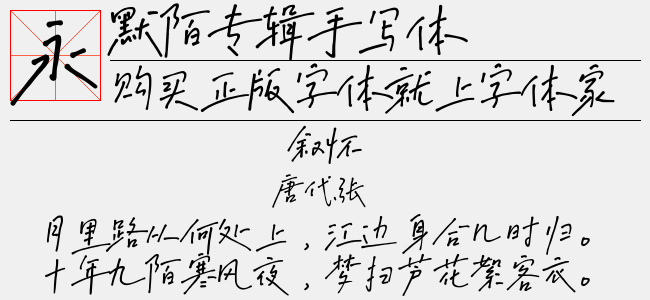 永
默陌专辑手写体
购买正版字体就上字体家
叙怀
唐代张
月里路从何处上，江边身合几时归。
十年九陌寒风夜，梦扫芦花絮客衣。